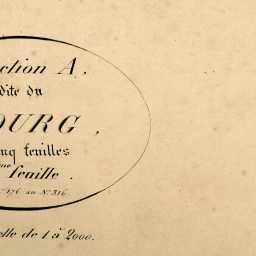 ction A.
dite du
OURG,
nq feuilles
me feuille.
176 au N° 316
elle de 1 à 2000.